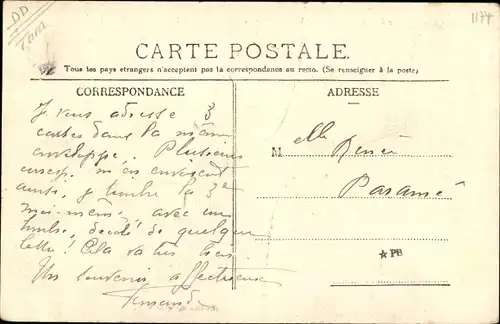 DD
1174
CARTE POSTALE.
Tous les pays étrangers n'acceptent pas la correspondance au recto. (Se renseigner à la poste)
CORRESPONDANCE
ADRESSE
Je vous adresse 3
cartes dans la même
enveloppe. Plusieurs
m'en envoient
ainsi, je tombe la 3e
moi-même, avec un
timbre, de quelque
lettre! Cela va très bien.
Un souvenir affectueux
Fernand
M elle Renée
Paramé
★ PB